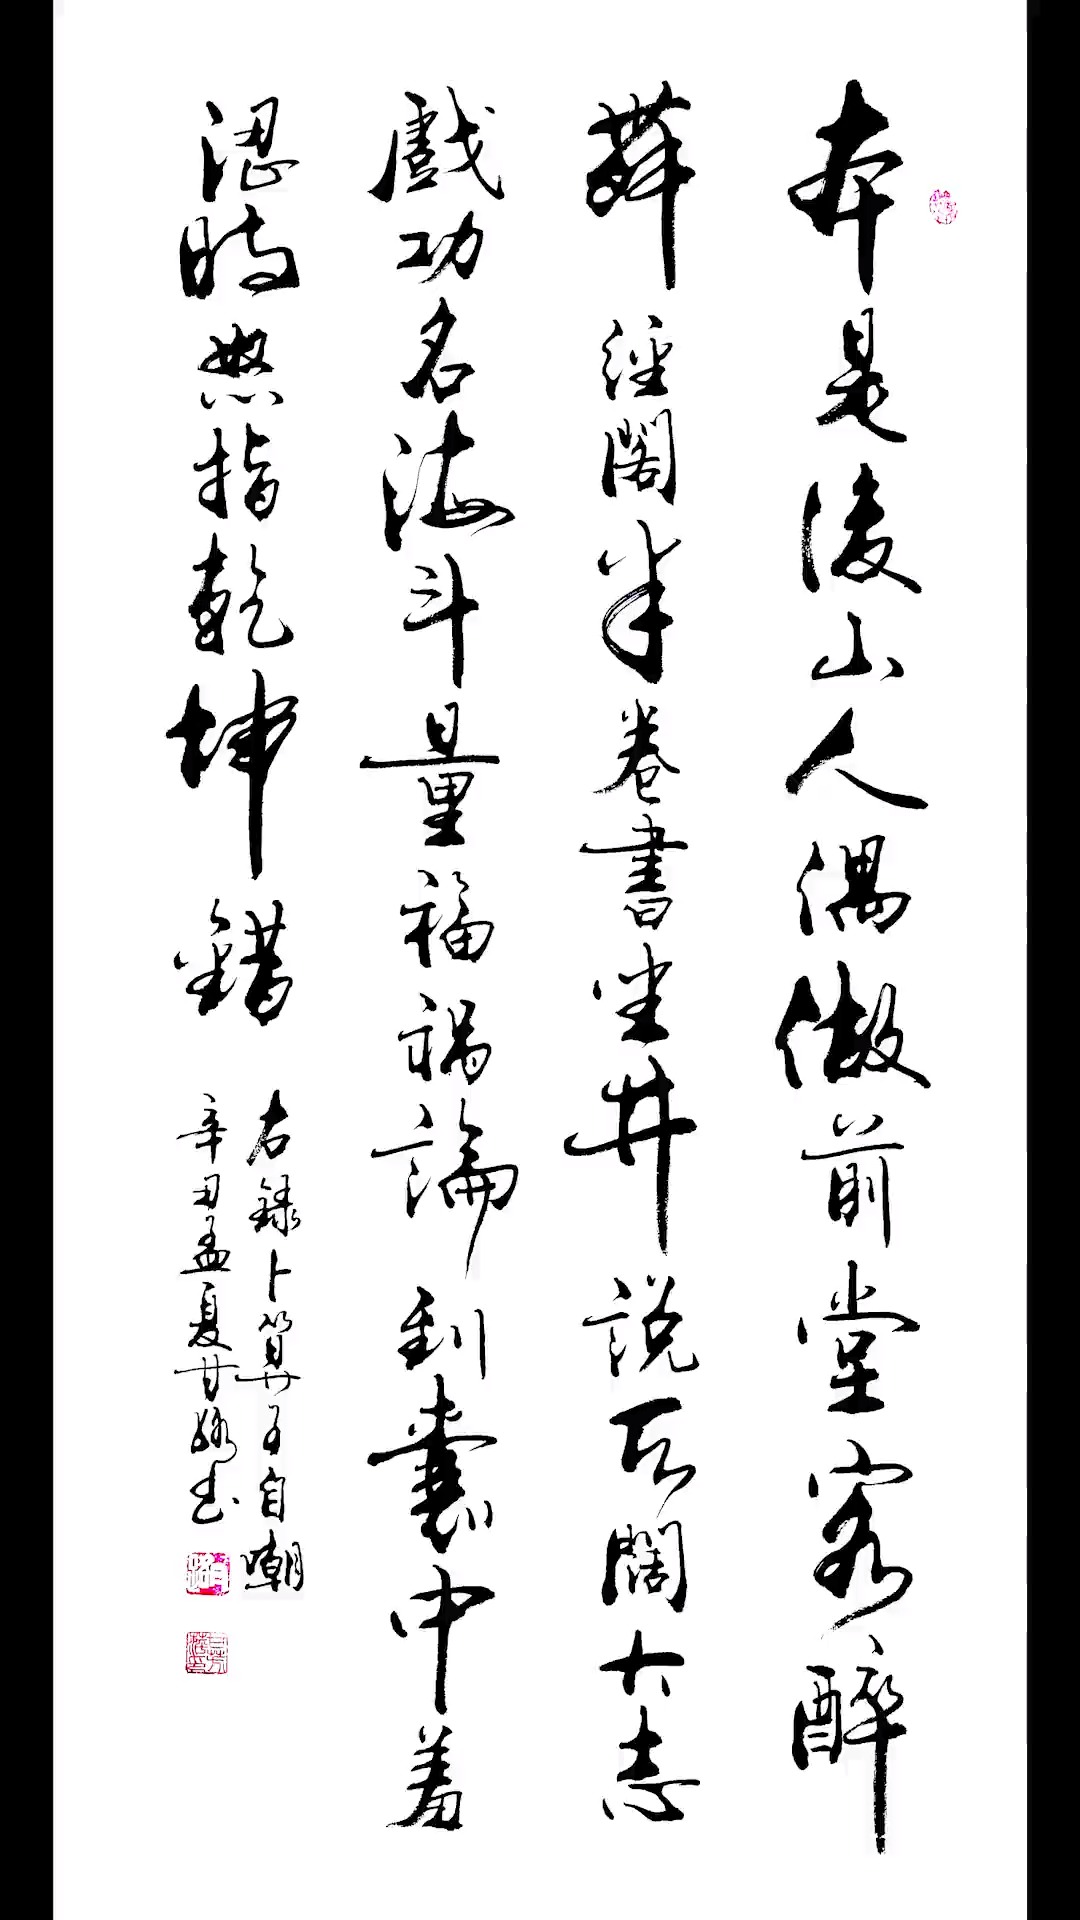 本是凌山人偶做前堂客醉
舞經閣半卷書坐井說天闊大志
戲功名海斗量福禍論到囊中羞
澀時怒指乾坤錯
右錄卜算子自嘲
辛丑孟夏甘书